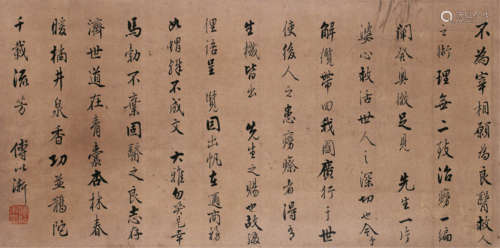 不為宰相願為良醫救人
之術理無二致治瘍一編
闡發奧微足見 先生一片
婆心救活世人之深切也今
解纜帶回我國廣行于世
使後人之患瘍療者得有
生機皆出 先生之賜也故綴
俚語呈覽因出帆在通商務
此惜靜不成文 大雅勿笑是幸
馬勃不棄固醫之良志存
濟世道在青囊杏林春
暖橘井泉香功並鵲院
千載流芳 傅以漸